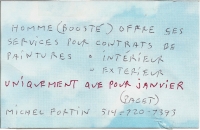 HOMME (BOOSTÉ) OFFRE SES
SERVICES POUR CONTRATS DE
PAINTURES = INTÉRIEUR
= EXTÉRIEUR
UNIQUEMENT QUE POUR JANVIER
(PAGET)
MICHEL FORTIN 514-720-7373